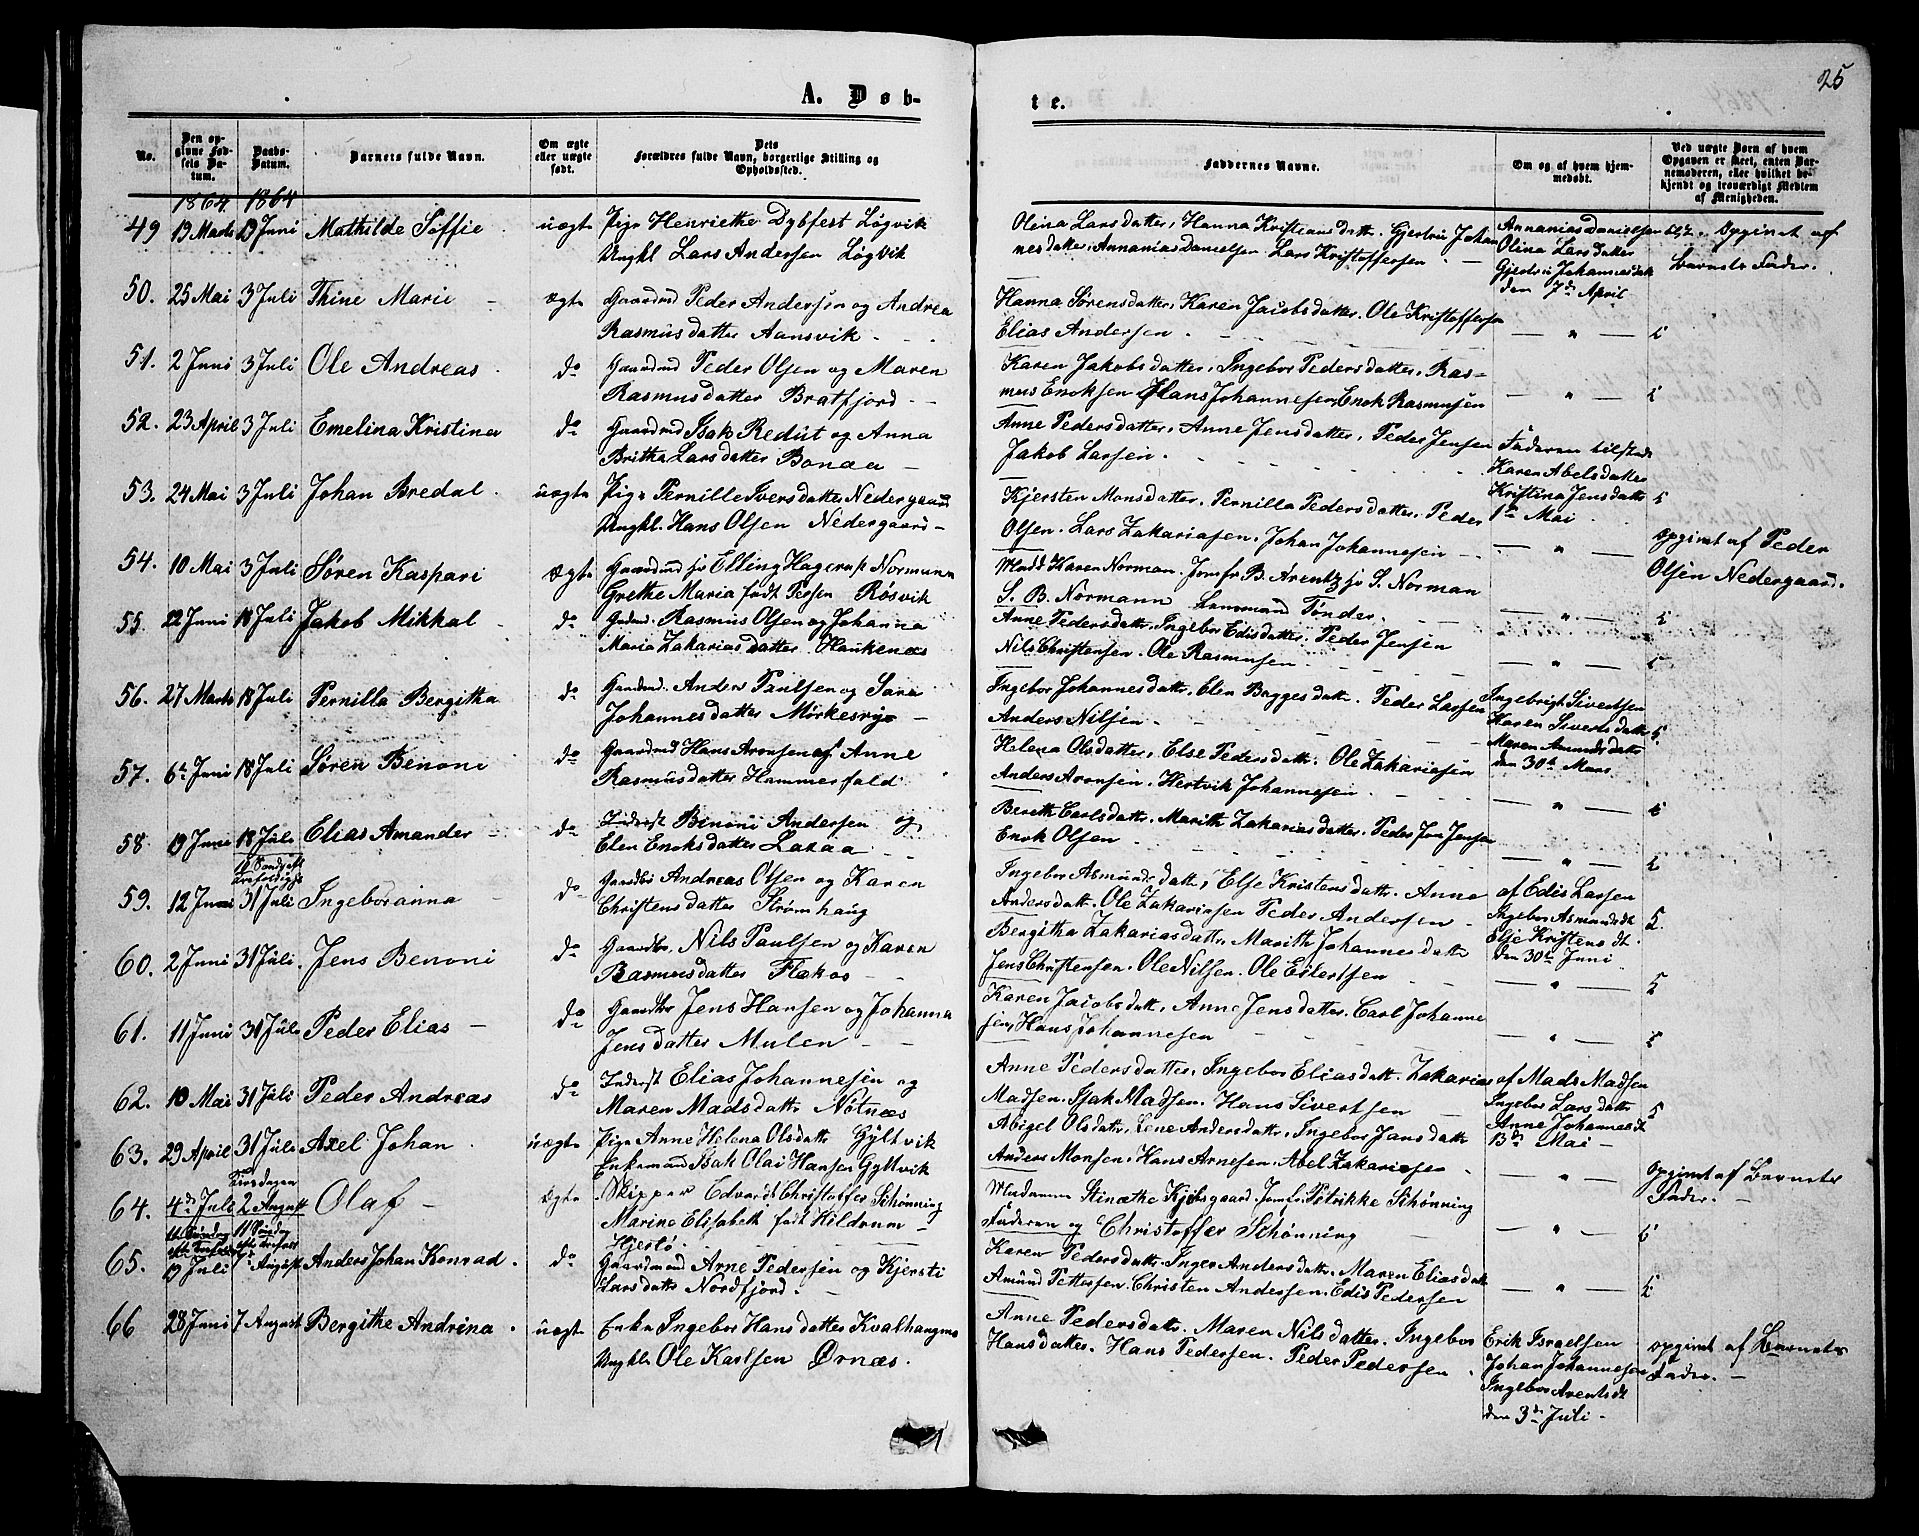 25
A. Døb-
te.
No.
Den op-
givne Fød-
sels Da-
tum.
Daabs-
Datum.
Barnets fulde Navn.
Om ægte
eller uægte
født.
Dets
Forældres fulde Navn, borgerlige Stilling og
Opholdssted.
Faddernes Navne.
Om og af hvem hjem-
medøbt.
Ved uægte Børn af hvem
Opgaven er skeet, enten Bar-
nemoderen, eller hvilket be-
kjendt og troværdigt Medlem
af Menigheden.
1864 1864
49 19 Marts 19 Juni Mathilde Søffie uægte Pige Henriethe Dybfest Løgvik
Ungkl Lars Andersen Løgvik
Olina Larsdatter, Hanna Kristiansdatt. Gjertrü Johan
nesdatter, Annanias Danielsen Lars Kristoffersen
Annanias Danielsen
Olina Larsdatter
Gjertrü Johannesdatt
den 7de April
Opgivet af
Barnets Fader.
50. 25 Mai 3 Juli Thine Marie ægte Gaardmd Peder Andersen og Andrea
Rasmusdatter Aansvik
Hanna Sørensdatter, Karen Jacobsdatter. Ole Kristoffersen
Elias Andersen
51. 2 Juni 3 Juli Ole Andreas do Gaardmd Peder Olsen og Maren
Rasmusdatter Bratfjord
Karen Jakobsdatter, Ingebor Pedersdatter. Ras-
mus Enoksen Hans Johannesen, Enok Rasmusen
52. 23 April 3 Juli Emelina Kristina do Gaardmd Isak Redüt og Anna
Britha Larsdatter Bonaa
Anne Pedersdatter, Anne Jensdatter, Peder Jensen
Jakob Larsen.
Faderen tilstede
Karen Abelsdatter
Kristina Jensdatter
1ste Mai
53. 24 Mai 3 Juli Johan Bredal uægte Pige Pernille Iversdatter Nedergaard
Ungkl. Hans Olsen Nedergaard
Kjersten Monsdatter, Pernilla Pedersdatter, Peder
Olsen, Lars Zakariasen, Johan Johannesen
opgivet af Peder
Olsen Nedergaard.
54. 10 Mai 3 Juli Søren Kaspari ægte Gaardmd jr Elling Hagerup Normann
Grethe Maria født Jessen Røsvik
Madd Karen Norman. Jomfr B. Arentz jr S. Norman
S. B. Normann Lensmand Tønder.
55. 22 Juni 18 Juli Jakob Mikkal do Gaardmd. Rasmus Olsen og Johanna
Maria Zakariasdatter Haukenæs
Anne Pedersdatter, Ingebor Edisdatter, Peder Jensen
Nils Christensen. Ole Rasmusen
56. 27 Marts 18 Juli Pernilla Bergitha do Gaardmd. Anders Paulsen og Sara
Johannesdatter Mørkesvig
Ingebor Johannesdatter, Elen Byggesdatt. Peder Larsen
Anders Nilsen.
Ingebrigt Sivertsen
Karen Sivertsdatt
Maren Amundsdatt
den 30te Mars
57. 6te Juni 18 Juli Søren Benoni do Gaardmd Hans Aronsen og Anne
Rasmusdatter Hammerfald
Helena Olsdatter, Else Pedersdatt. Ole Zakariasen
Anders Aronsen. Hertvik Johannesen
58. 19 Juni 18 Juli Elias Amander do Inderst Benoni Andersen og
Elen Enoksdatter Lakaa
Bereth Carlsdatter, Marith Zakariasdatter, Peder Jon Jensen
Enok Olsen
59. 12 Juni 31 Juli Ingeborganna do Gaardbr Andreas Olsen og Karen
Christensdatter Strømhaug
Ingebor Asmundsdatt, Else Kristensdatt. Anne
Andersdatt. Ole Zakariasen Peder Andersen
af Edis Larsen
Ingebor Asmundsdt
Else Kristensdt.
den 30te Juni
60. 2 Juni 31 Juli Jens Benoni do Gaardbr. Nils Paulsen og Karen
Rasmusdatter Flakas
Bergitha Zakariasdatter, Marith Johannesdatt
Jens Christensen. Ole Nilsen. Ole Eilertsen
61. 11 Juni 31 Juli Peder Elias do Gaardbr Jens Hansen og Johanna
Jensdatter Mulen
Karen Jacobsdatt, Anne Jensdatter. Carl Johanne
sen, Hans Johannesen
62. 10 Mai 31 Juli Peder Andreas do Inderst Elias Johannesen og
Maren Madsdatter Nøtnæs
Anne Pedersdatter, Ingebor Eliasdatt. Zakarias
Madsen. Isak Madsen. Hans Sivertsen
af Mads Madsen
Ingebor Larsdatter
Anne Johannesdt
13de Mai
63. 29 April 31 Juli Axel Johan uægte Pige Anne Helena Olsdatt Gyltvik
Enkemand Isak Olai Hansen Gyltvik
Abigel Olsdatter, Lene Andersdatter, Ingebor Jansdatt
Anders Monsen, Hans Arnesen, Abel Zakariasen
opgivet af Barnets
Fader.
64. 4de Juli 2 August Olaf ægte Skipper Edvardt Christoffer Schønning
Marine Elisabeth født Kildrum
Hjertø
Madamm Stinethe Kjelsgaard. Jomfr Petrikke Schønning
Faderen og Christoffer Schønning
65. 19 Juli 7 August Anders Johan Konrad do Gaardmand Arne Pedersen og Kjersti
Larsdatter Nordfjord.
Karen Pedersdatt. Inger Andersdatter. Maren Eliasdatt
Amund Pettersen. Christen Andersen. Edis Pedersen
66 28 Juni 7 August Bergithe Andrina uægte Enke Ingebor Hansdatter Kvalhangen
Ungkl Ole Karlsen Ørnæs.
Anne Pedersdatt. Maren Nilsdatter. Ingebor
Hansdatter. Hans Pedersen. Peder Pedersen
Erik Israelsen
Johan Johannesen
Ingebor Arentsdt
den 3de Juli
opgivet af Barnets
Fader.